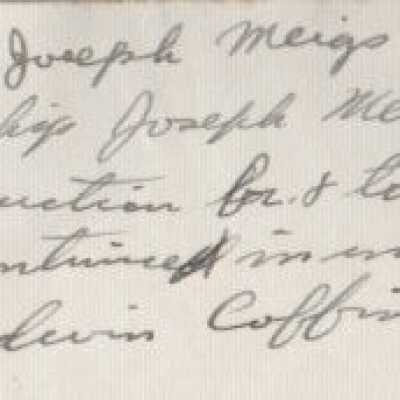 Joseph Meigs
hip Joseph Me
uction for. & to
ntinued in
dwin Coffin